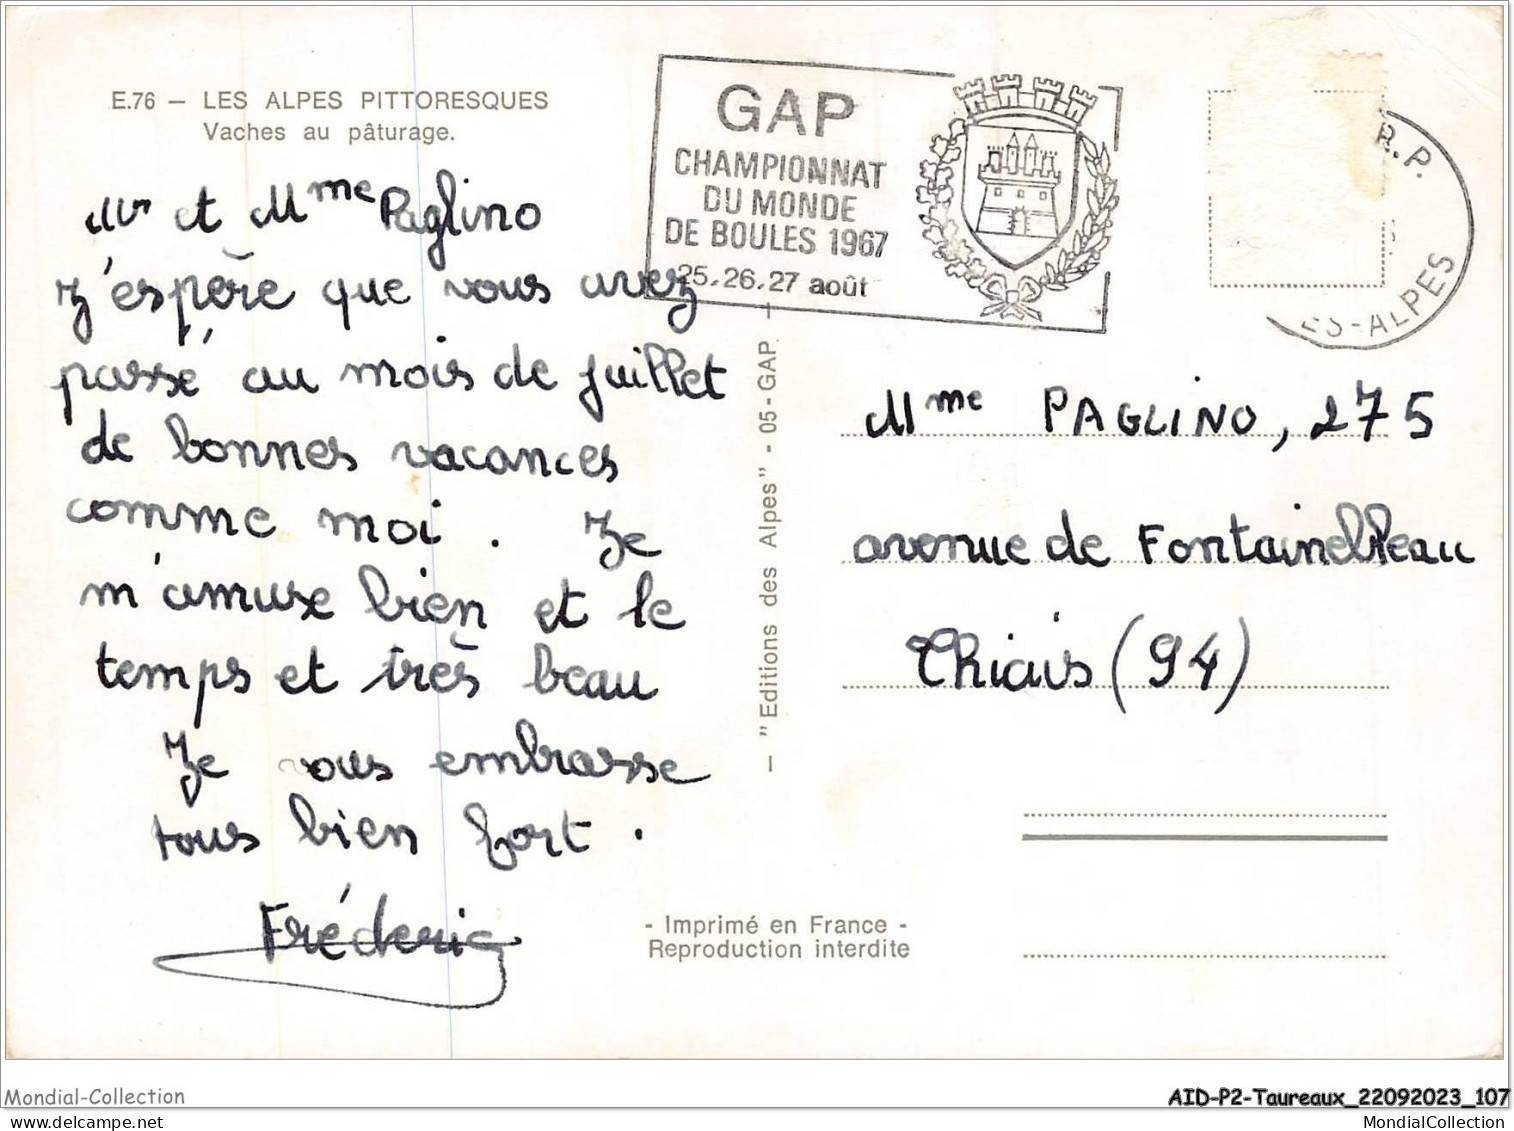 E.76 — LES ALPES PITTORESQUES
Vaches au pâturage.
Mr et Mme Paglino
J'espère que vous avez
passé au mois de juillet
de bonnes vacances
comme moi. Je
m'amuse bien et le
temps et très beau
Je vous embrasse
tous bien fort.
Fréderic
GAP
CHAMPIONNAT
DU MONDE
DE BOULES 1967
25.26.27 août
R.P.
ES-ALPES
— "Editions des Alpes" - 05-GAP —
Mme PAGLINO, 275
avenue de Fontainebleau
Thiais (94)
- Imprimé en France -
Reproduction interdite
Mondial-Collection
AID-P2-Taureaux_22092023_107
MondialCollection